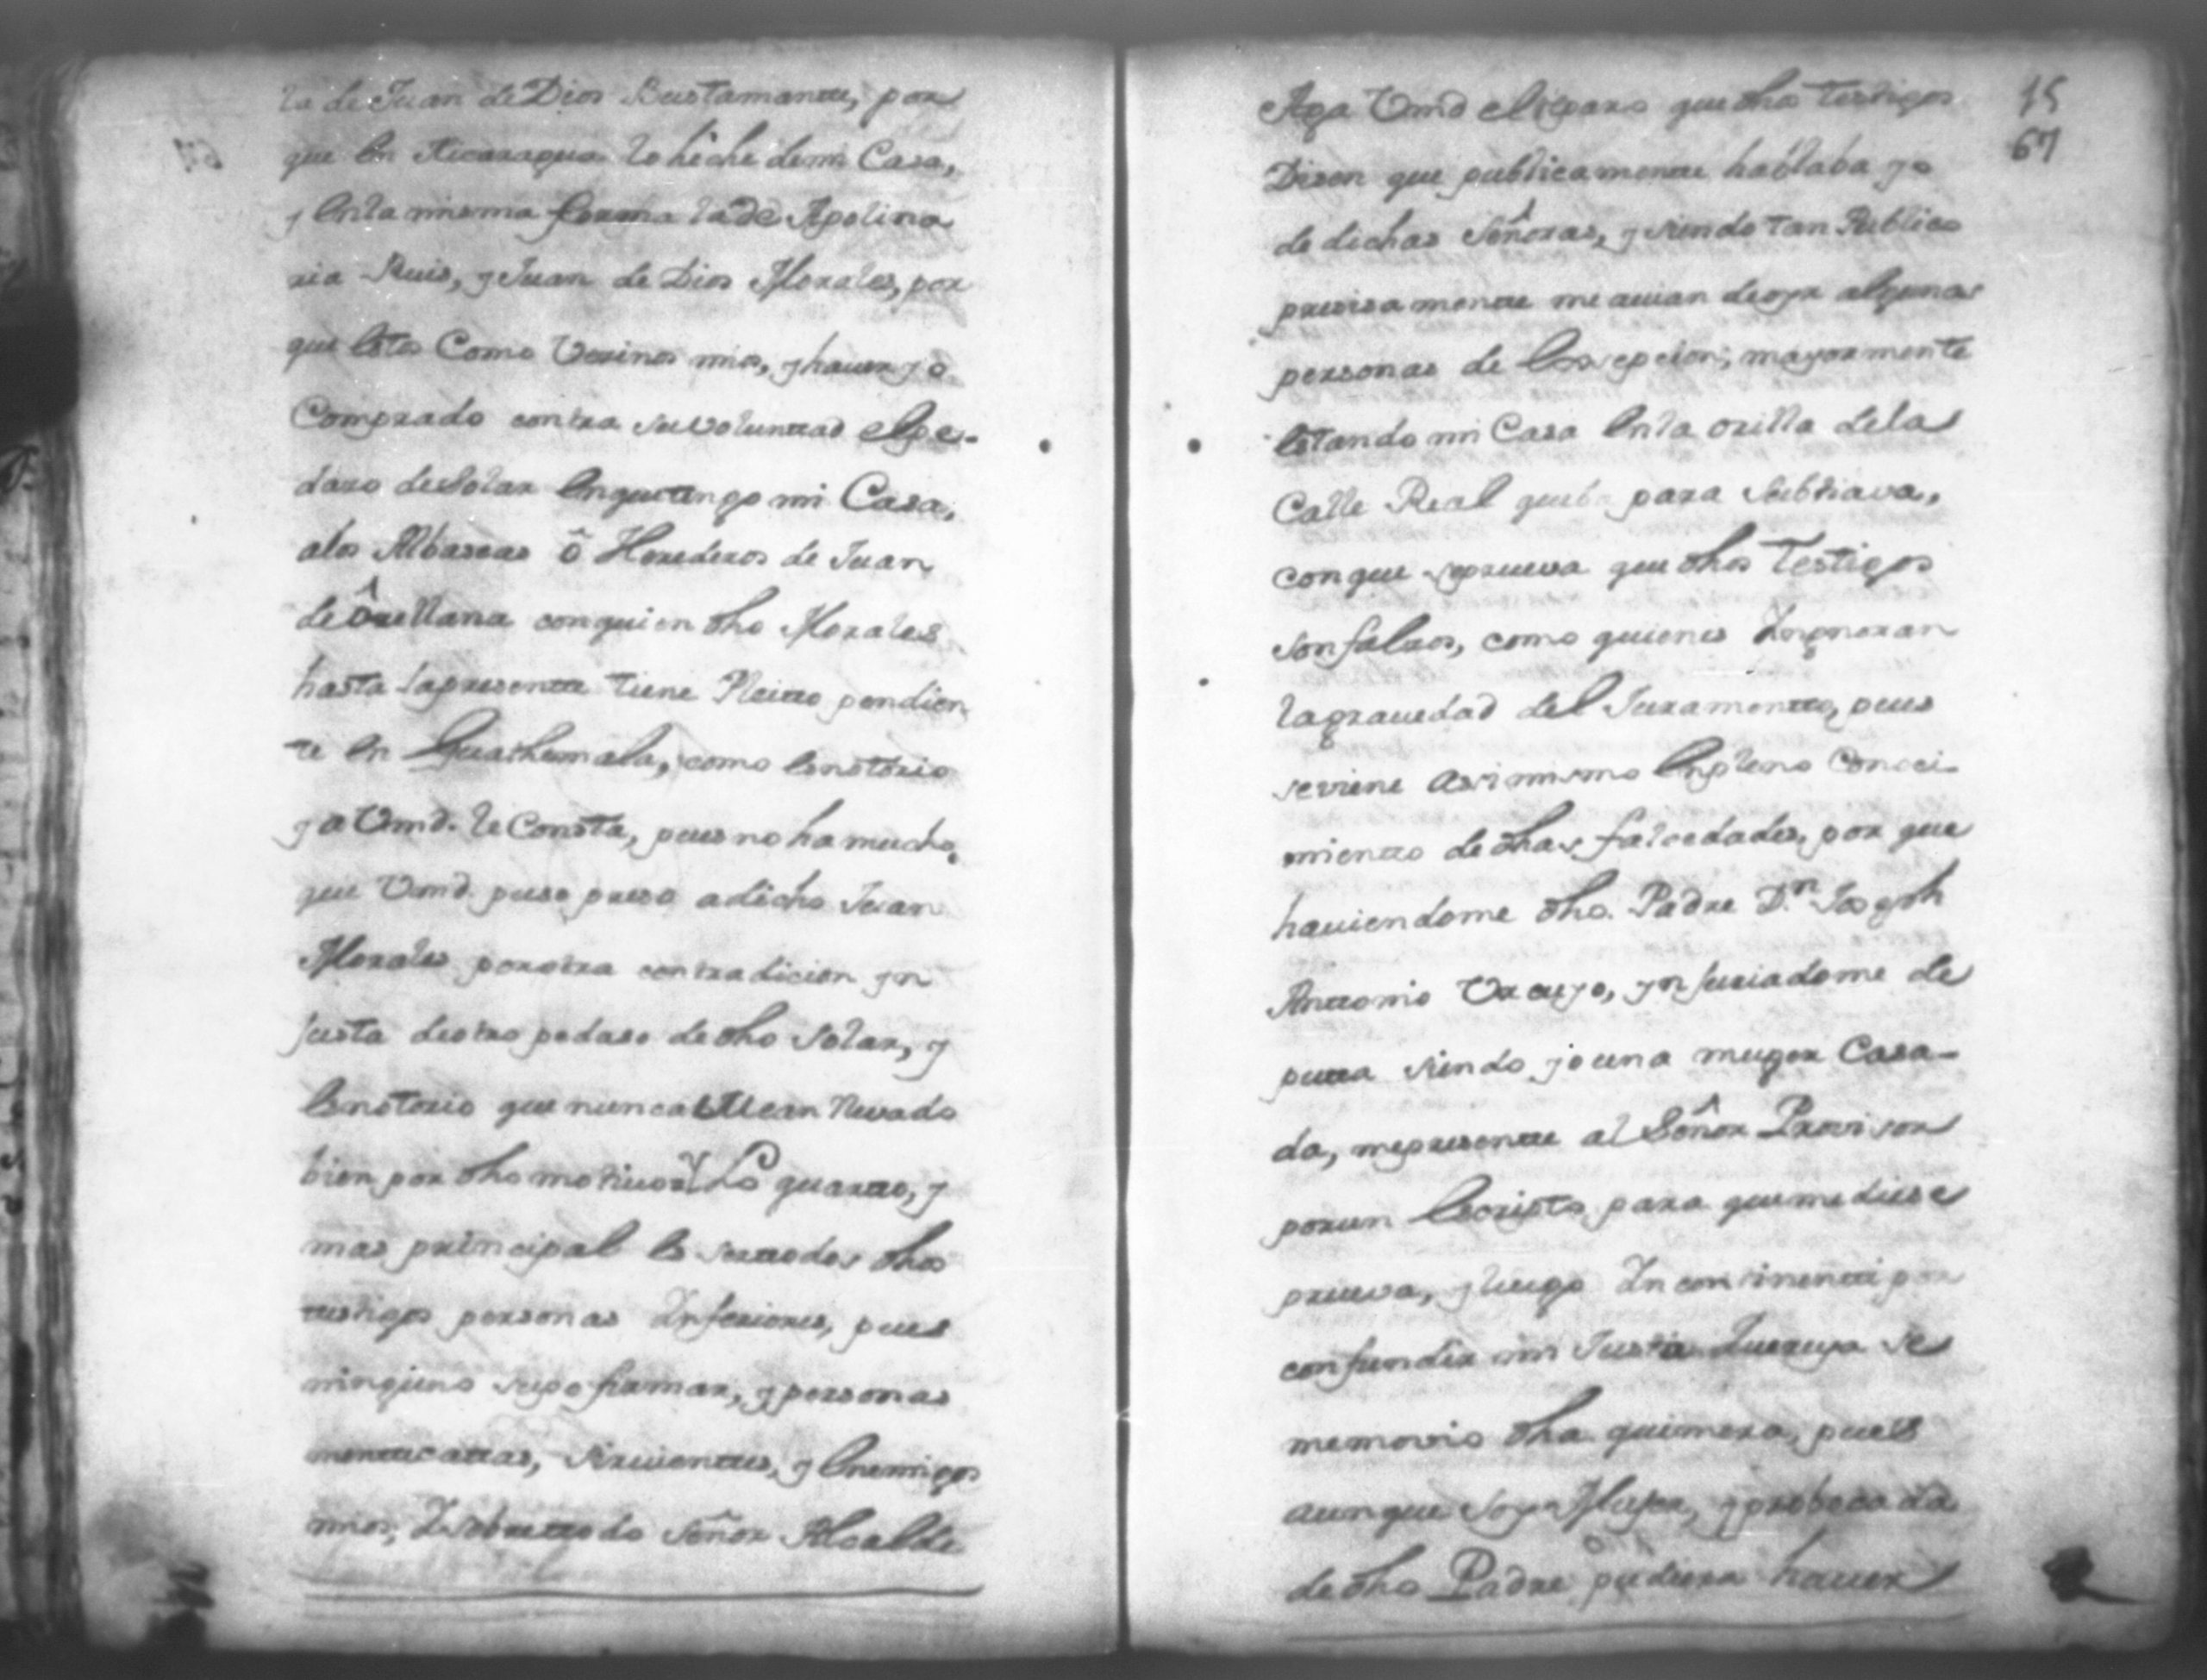 la de Juan de Dios Bustamante, por
que en Nicaragua lo heche de mi Casa,
y en la misma forma la de Apolina
ria Ruis, y Juan de Dios Morales, por
que estos Como Vecinos mios, y hauer yo
Comprado contra su voluntad el pe-
daso de Solar en que tengo mi Casa,
a los Albaseas ô Herederos de Juan
de Ôrellana con quien dho Morales
hasta la presente tiene Pleito pendien
te en Guathemala, como es notorio
y a Vmd. le Consta, pues no ha mucho,
que Vmd. puso preso a dicho Juan
Morales por otra contradicion yn
justa de otro pedaso de dho Solar, y
es notorio que nunca llevado
bien por dho motiuo Lo quarto, y
mas principal es ser todos dhos
testigos personas Inferiores, pues
ninguno supo firmar, y personas
mentecattas, siruientes, y enemigos
mios, I sobre todo Señor Alcalde
15
67
Aga Vmd el reparo que dhos testigos
Disen que publicamente hablaba yo
de dichas Señoras, y siendo tan Publico
presisamente me auian de oyr algunas
personas de exsepcion, mayormente
estando mi Casa en la orilla de la
Calle Real que ba para Subtiava,
con que se prueva que dhos Testigos
son falsos, como quienes Ingnoran
la grauedad del Juramento, pues
se viene asi mismo en pleno Conoci-
miento de dhas falsedades, por que
hauiendome dho. Padre D.n Joseph
Antonio Vrcuyo, ynjuriadome de
puta siendo yo una muger Casa-
da, me presente al Señor Provisor
por un escripto para que me diese
prueva, y luego Incontinenti por
confundir mi Justa Querella se
me movio dha quimera, pues
aunque soy Muger, y probocada
de dho Padre pudiera hauer